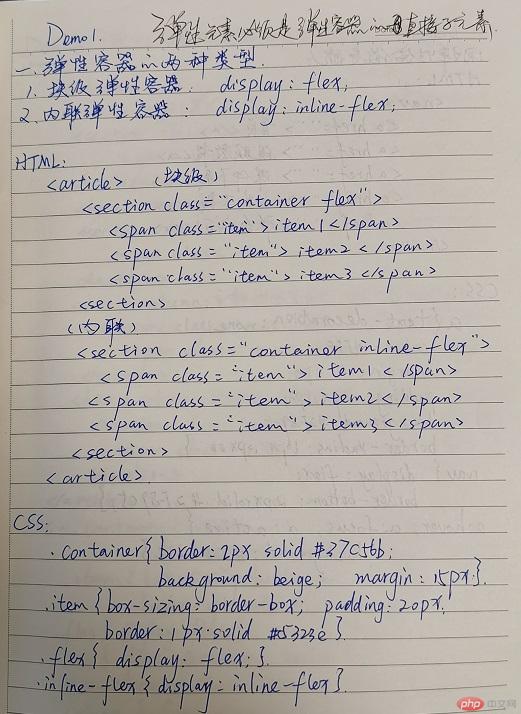 Demo1. 弹性元素必须是弹性容器的直接子元素.
一. 弹性容器的两种类型.
1. 块级弹性容器: display: flex;
2. 内联弹性容器: display: inline-flex;
HTML:
<article> (块级)
<section class="container flex">
<span class="item">item1</span>
<span class="item">item2</span>
<span class="item">item3</span>
<section>
(内联)
<section class="container inline-flex">
<span class="item">item1</span>
<span class="item">item2</span>
<span class="item">item3</span>
<section>
<article>
CSS:
.container{border: 2px solid #37c56b;
background: beige; margin: 15px;}.
.item{box-sizing: border-box; padding: 20px.
border: 1px solid #5323e}.
.flex{ display: flex;}.
.inline-flex{display: inline-flex}.
php 中文网